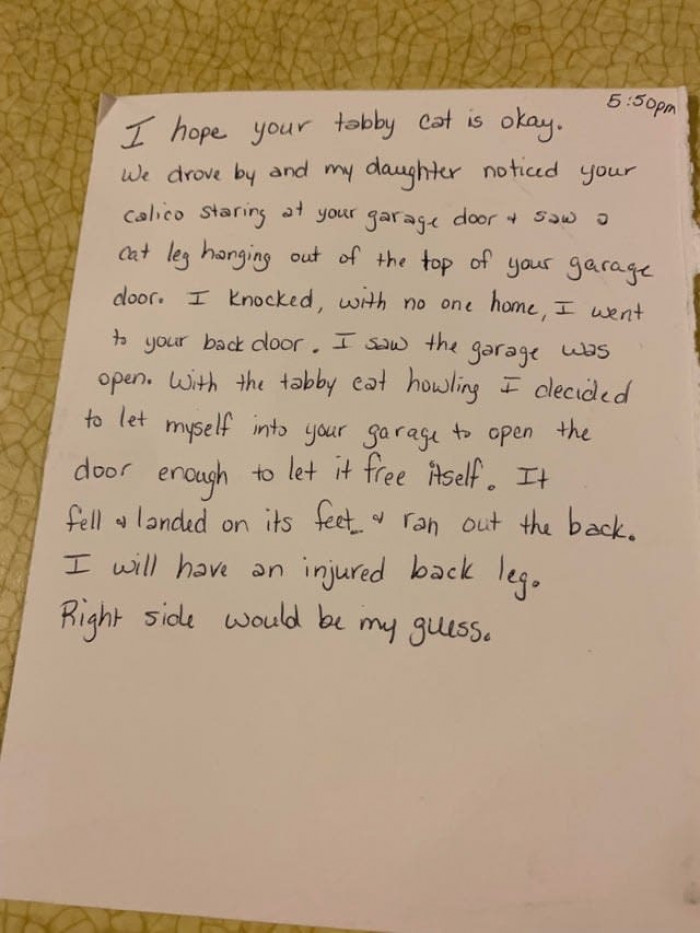 5:50pm
I hope your tabby cat is okay.
We drove by and my daughter noticed your
calico staring at your garage door & saw a
cat leg hanging out of the top of your garage
door. I knocked, with no one home, I went
to your back door. I saw the garage was
open. With the tabby cat howling I decided
to let myself into your garage to open the
door enough to let it free itself. It
fell & landed on its feet & ran out the back.
I will have an injured back leg.
Right side would be my guess.